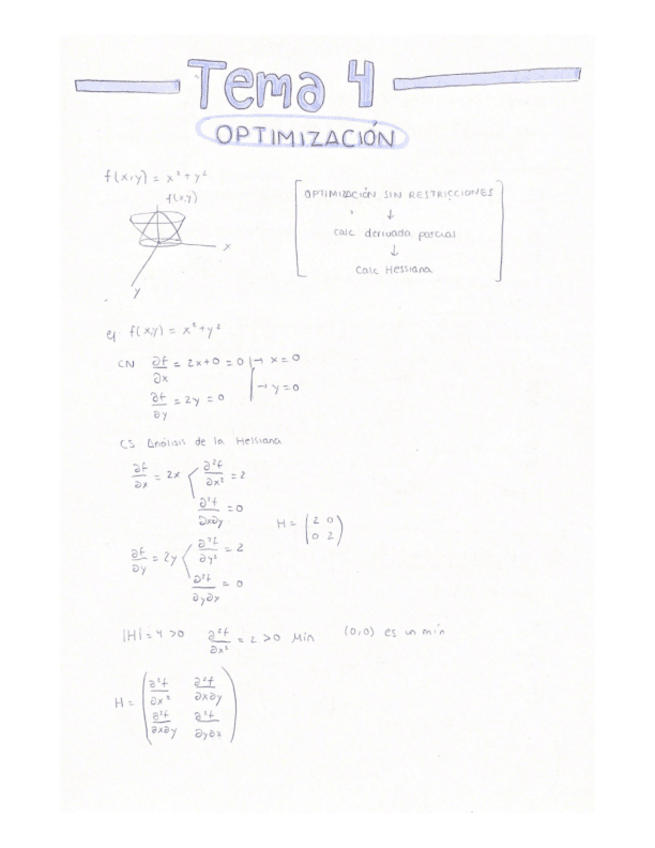 Tema 4
OPTIMIZACIÓN
f(x,y) = x² + y²
f(x,y)
x
y
OPTIMIZACIÓN SIN RESTRICCIONES
↓
calc derivada parcial
↓
Calc Hessiana
ej f(x,y) = x² + y²
CN ∂f/∂x = 2x+0 = 0 → x = 0
∂f/∂y = 2y = 0 → y = 0
CS Análisis de la Hessiana
∂f/∂x = 2x < ∂²f/∂x² = 2
∂²f/∂x∂y = 0
H = (2 0
0 2)
∂f/∂y = 2y < ∂²f/∂y² = 2
∂²f/∂y∂x = 0
|H| = 4 > 0 ∂²f/∂x² = 2 > 0 Min (0,0) es un min
H = (∂²f/∂x² ∂²f/∂x∂y
∂²f/∂x∂y ∂²f/∂y∂x)